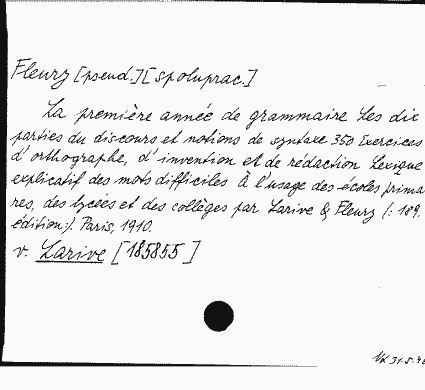 Fleury [pseud.] [spoluprac.]
La première année de grammaire Les dix
parties du discours et notions de syntaxe 350 Exercices
d'orthographe, d'invention et de rédaction Lexique
explicatif des mots difficiles À l'usage des écoles primai
res, des lycées et des collèges par Larive & Fleury (: 189.
édition:). Paris, 1910.
v. Larive [185855]
31.5.48